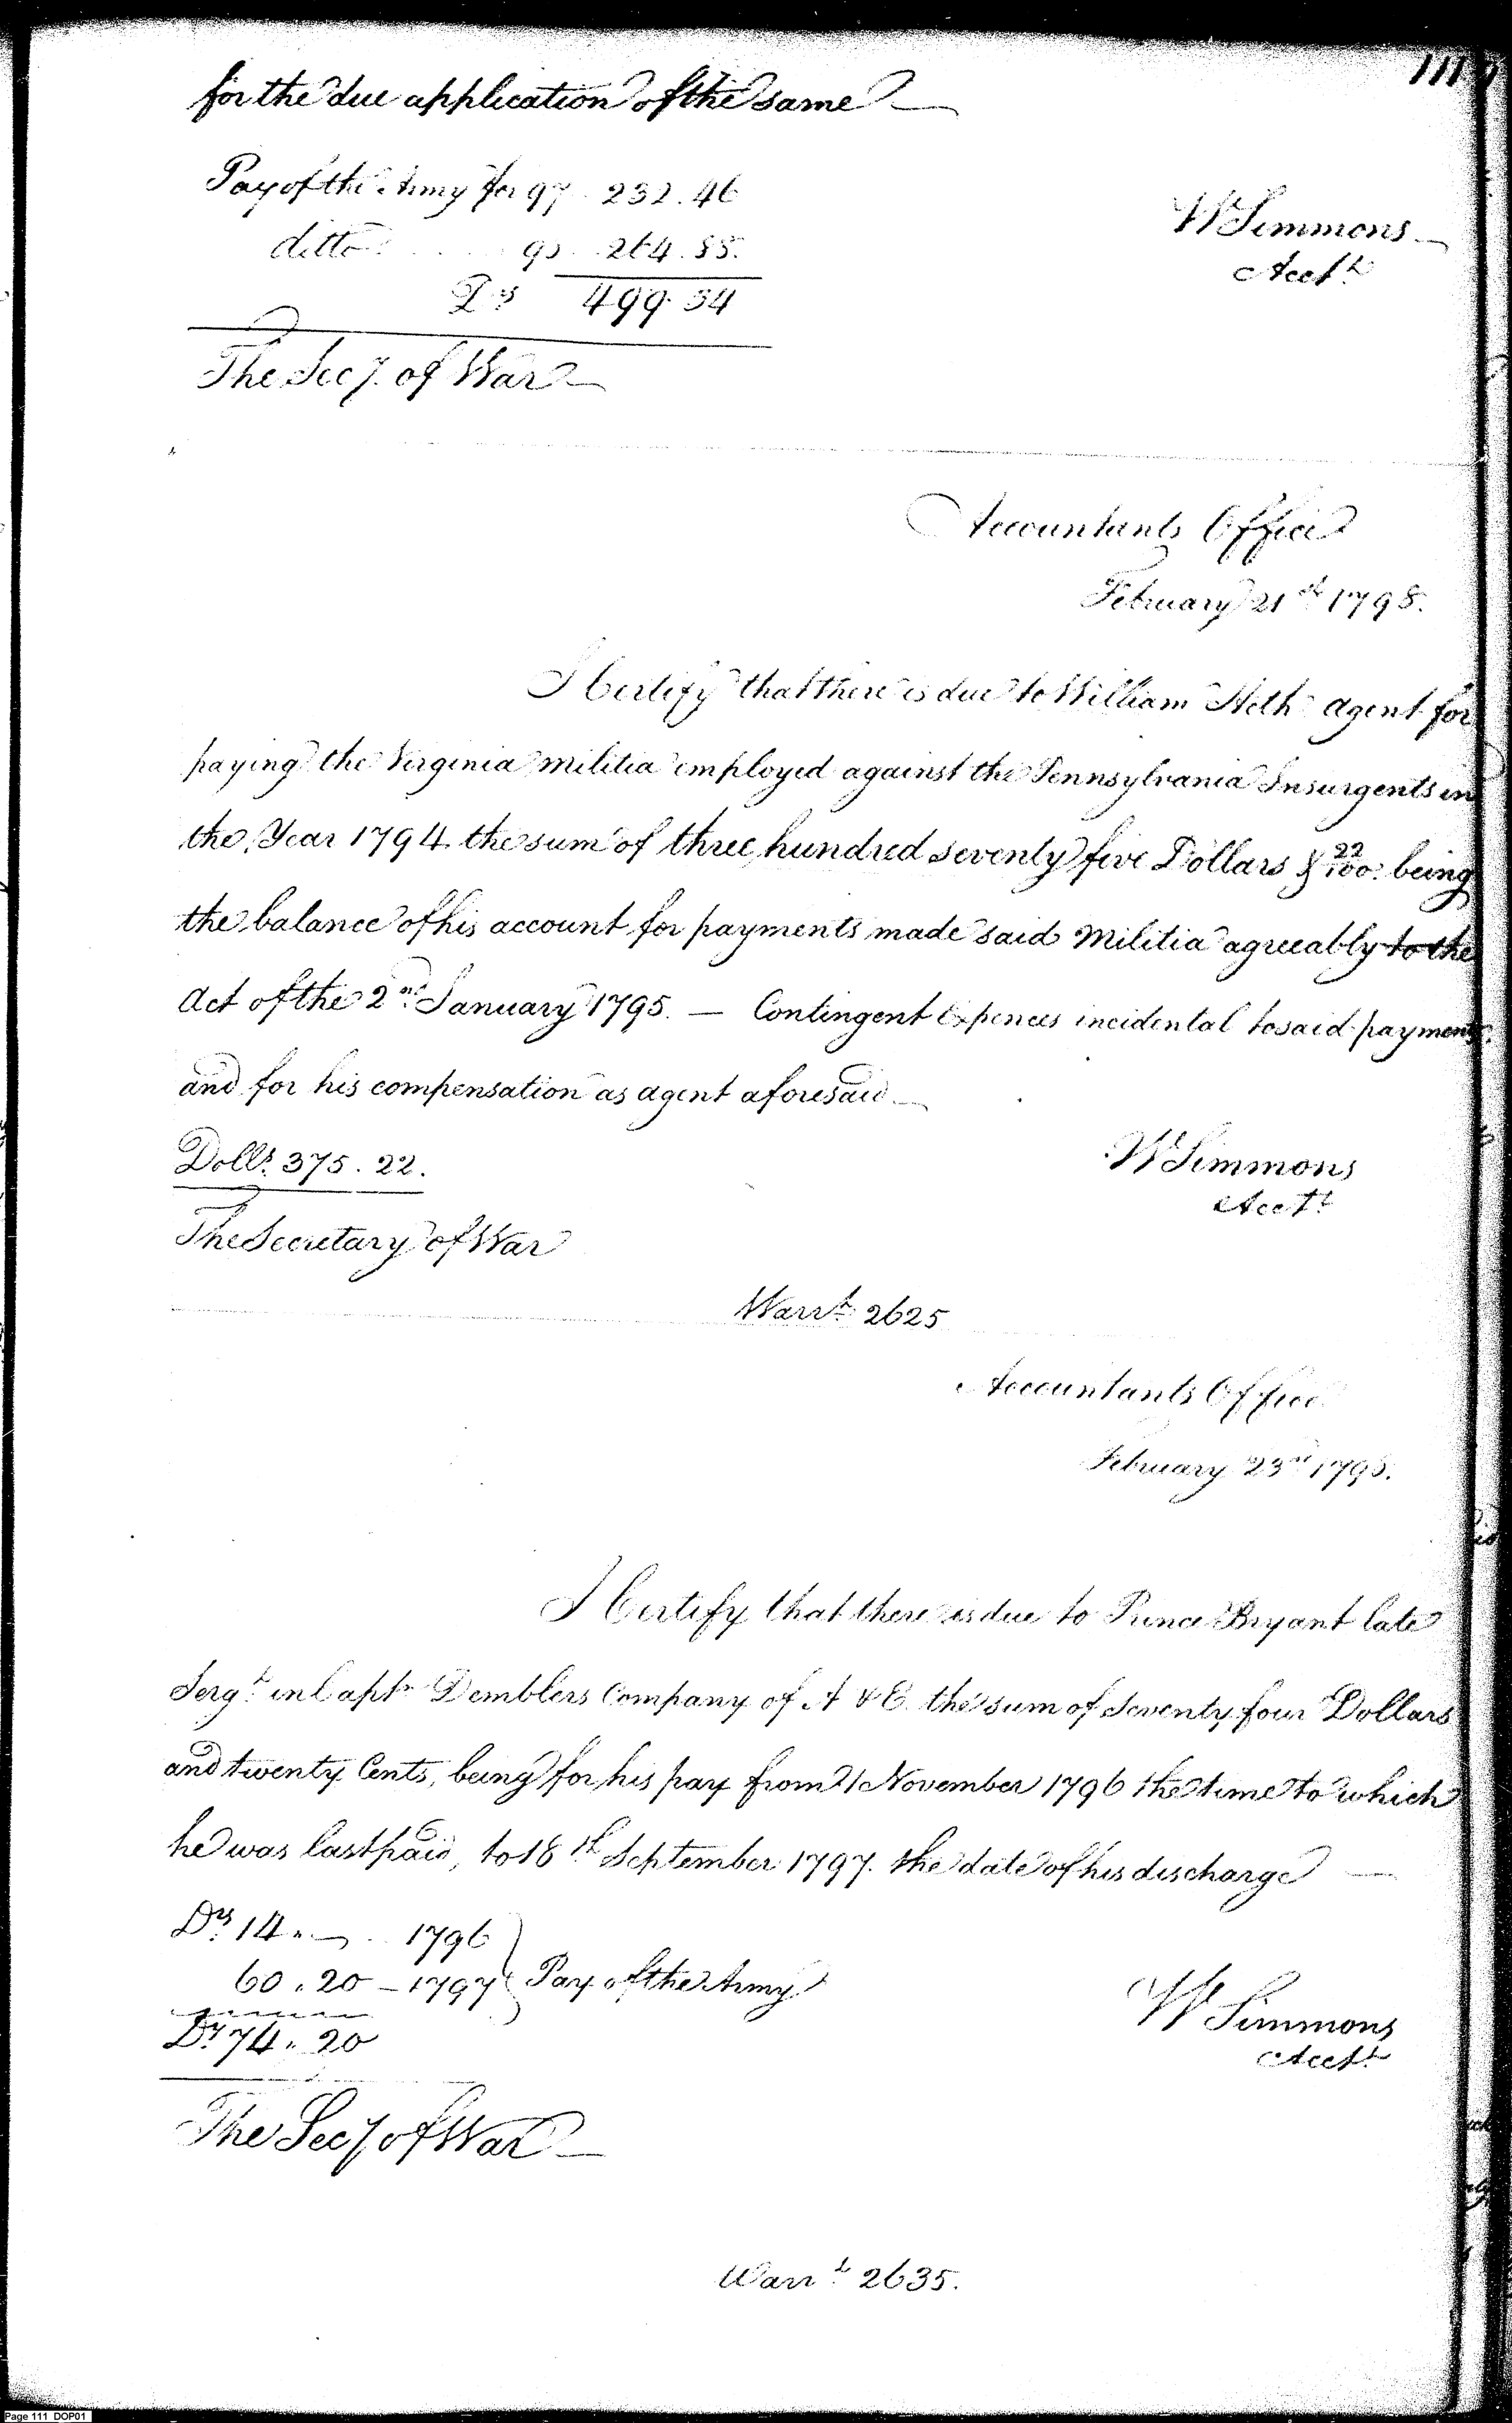 111
for the due application of the same —
Pay of the Army for 97 . 232.46
ditto . . . . . 98 . . 264.88.
Ds 499.34
W Simmons
Acct.t
The Secy. of War —
Accountants Office
February 21st 1798.
I Certify that there is due to William Heth agent for
paying the Virginia militia employed against the Pennsylvania Insurgents in
the Year 1794. the sum of three hundred seventy five Dollars & 22/100. being
the balance of his account for payments made said Militia agreeably to the
Act of the 2nd January 1795. — Contingent Expences incidental to said payments.
and for his compensation as agent aforesaid —
Dolls. 375.22.
W Simmons
Acct.t
The Secretary of War
Warrt. 2625
Accountants Office
February 23rd 1798.
I Certify that there is due to Prince Bryant late
Sergt. in Captn Demblers Company of A & E. the sum of Seventy four Dollars
and twenty Cents, being for his pay from 1 November 1796 the time to which
he was last paid, to 18th September 1797. the date of his discharge —
Ds. 14 . — . 1796
60 . 20 – 1797 } Pay of the Army
Ds. 74 . 20
W Simmons
Acct.t
The Secy of War —
Warrt. 2635.
Page 111 DOP01